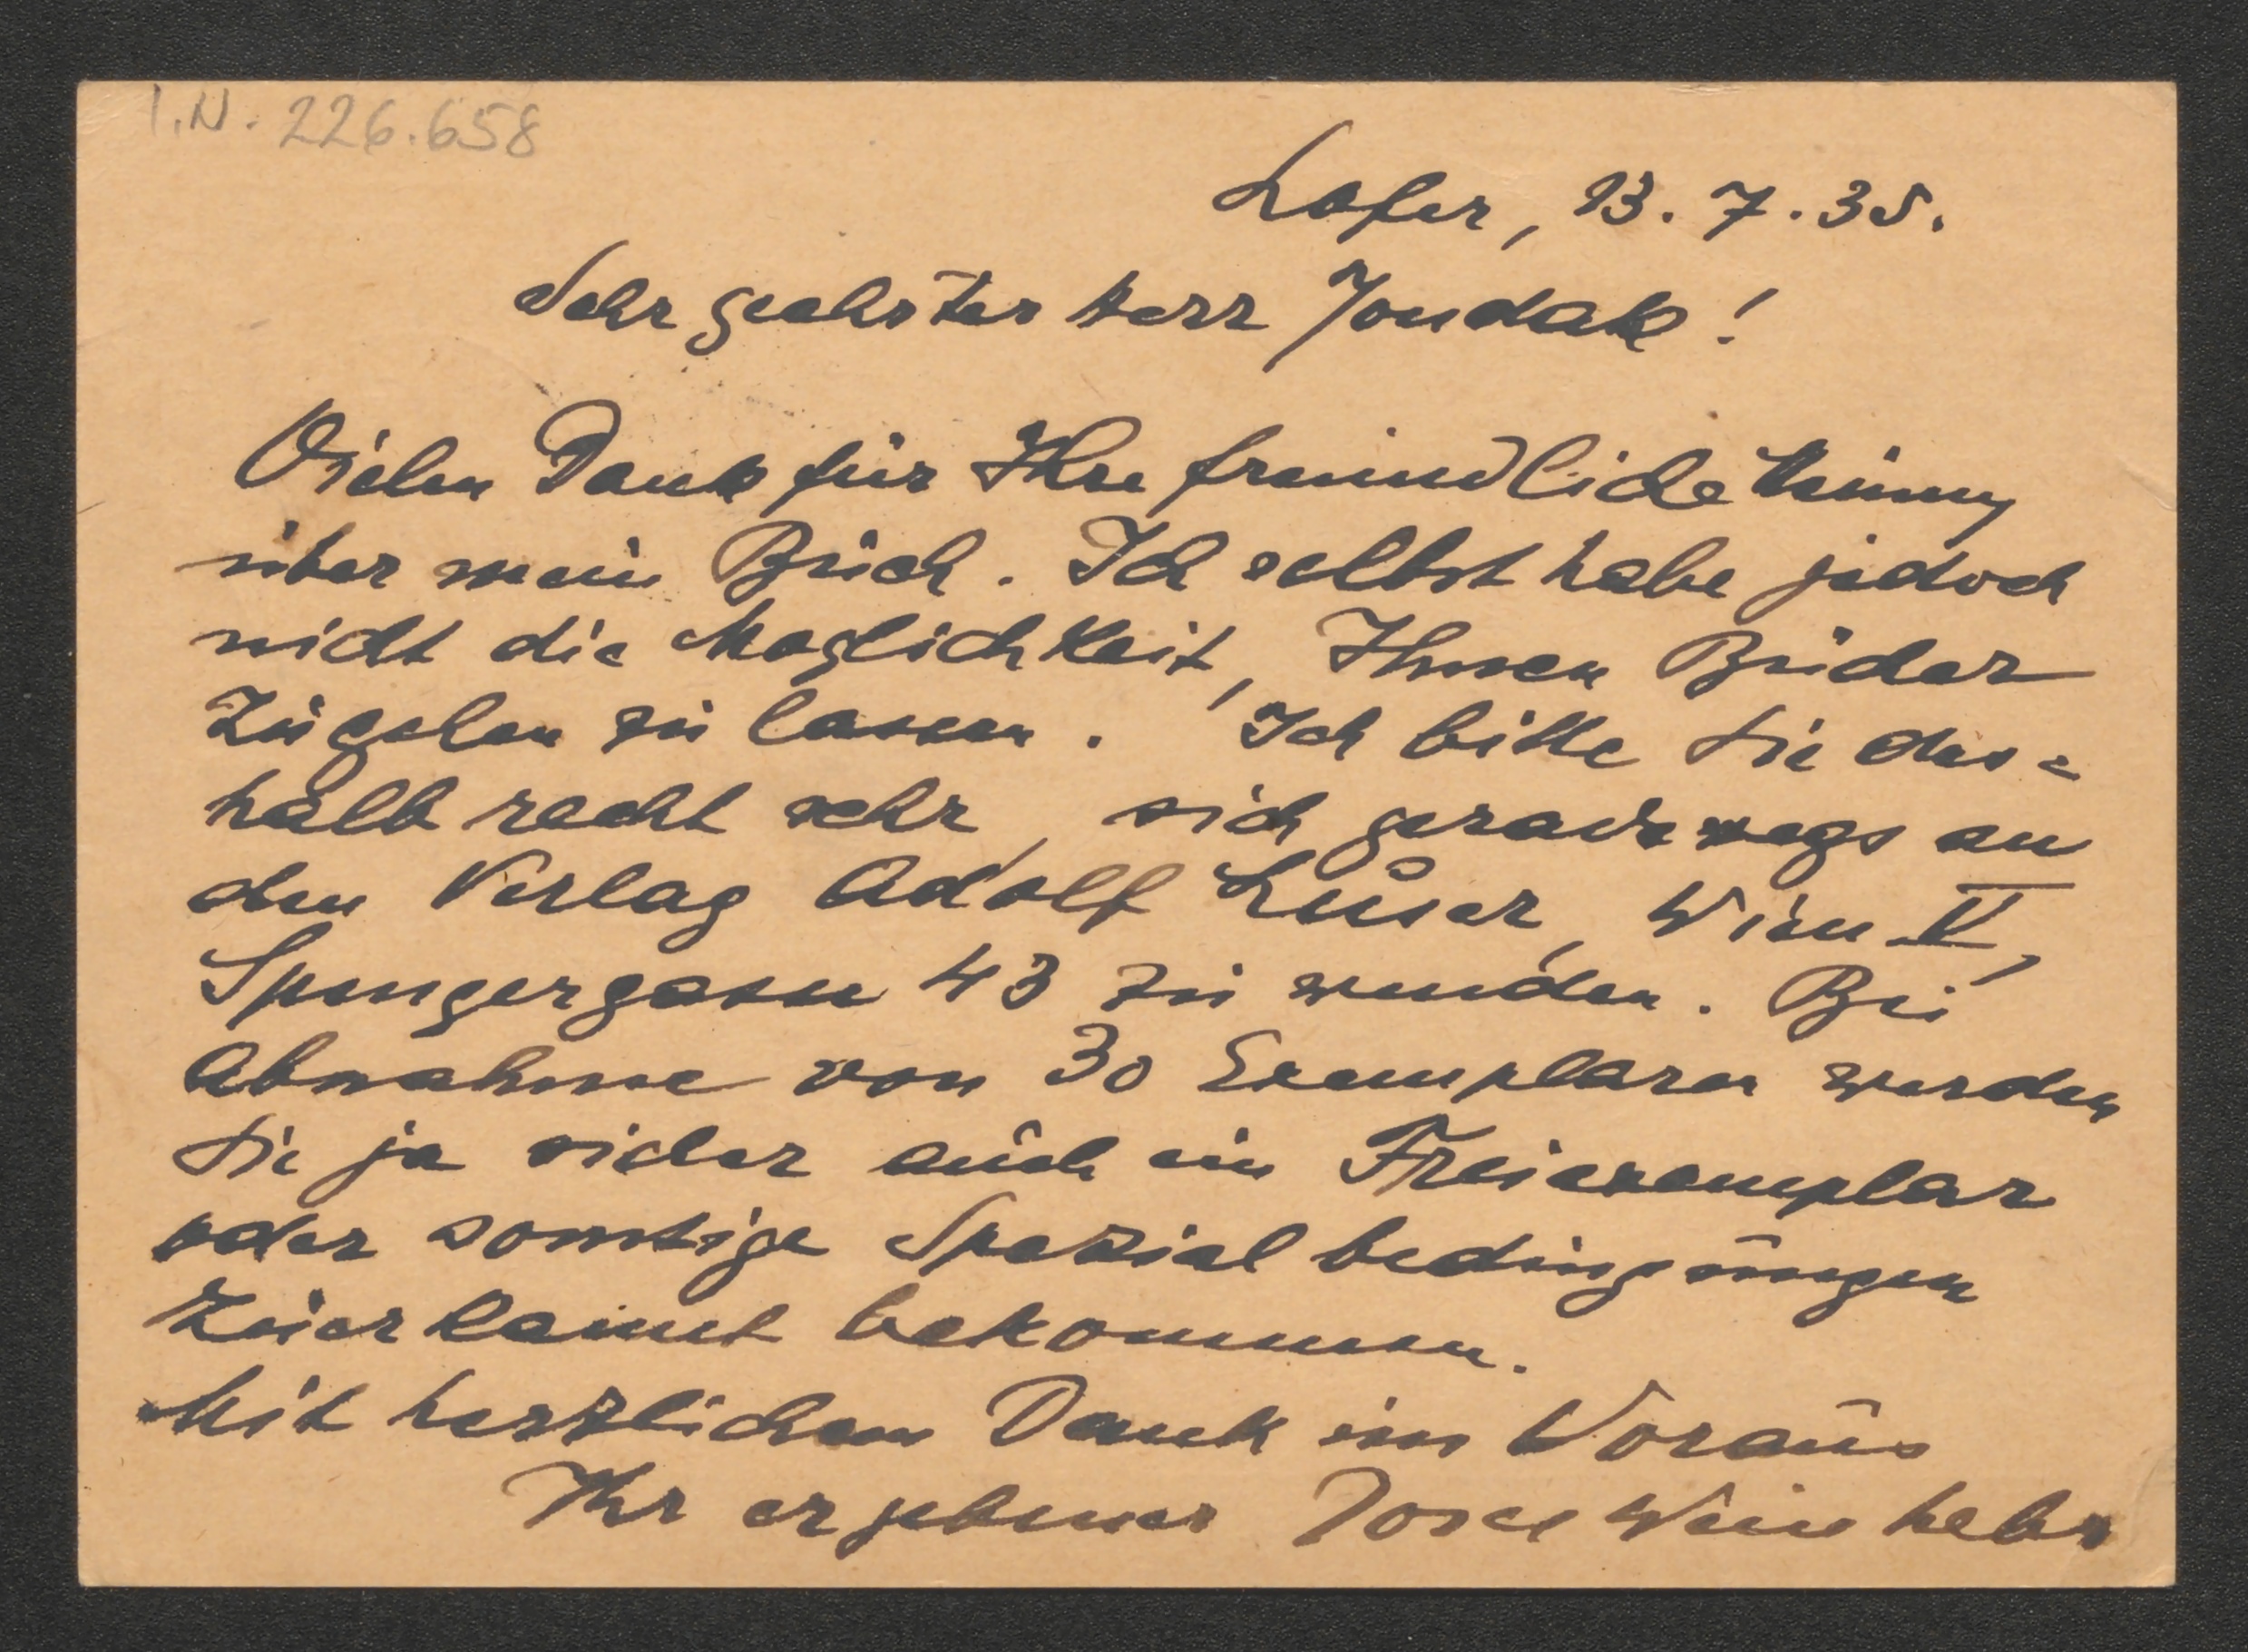 I.N. 226.658
Lofer, 13. 7. 35.
Sehr geehrter Herr Jondak!
Vielen Dank für Ihre freundliche Meinung
über mein Buch. Ich selbst habe jedoch
nicht die Möglichkeit, Ihnen Bücher
zugehen zu lassen. Ich bitte Sie des=
halb recht sehr, sich geradewegs an
den Verlag Adolf Luser, Wien V,
Spengergasse 43 zu wenden. Bei
Abnahme von 30 Exemplaren werden
Sie ja sicher auch ein Freiexemplar
oder sonstige Spezialbedingungen
zuerkannt bekommen.
Mit herzlichem Dank im Voraus
Ihr ergebener Josef Weinheber